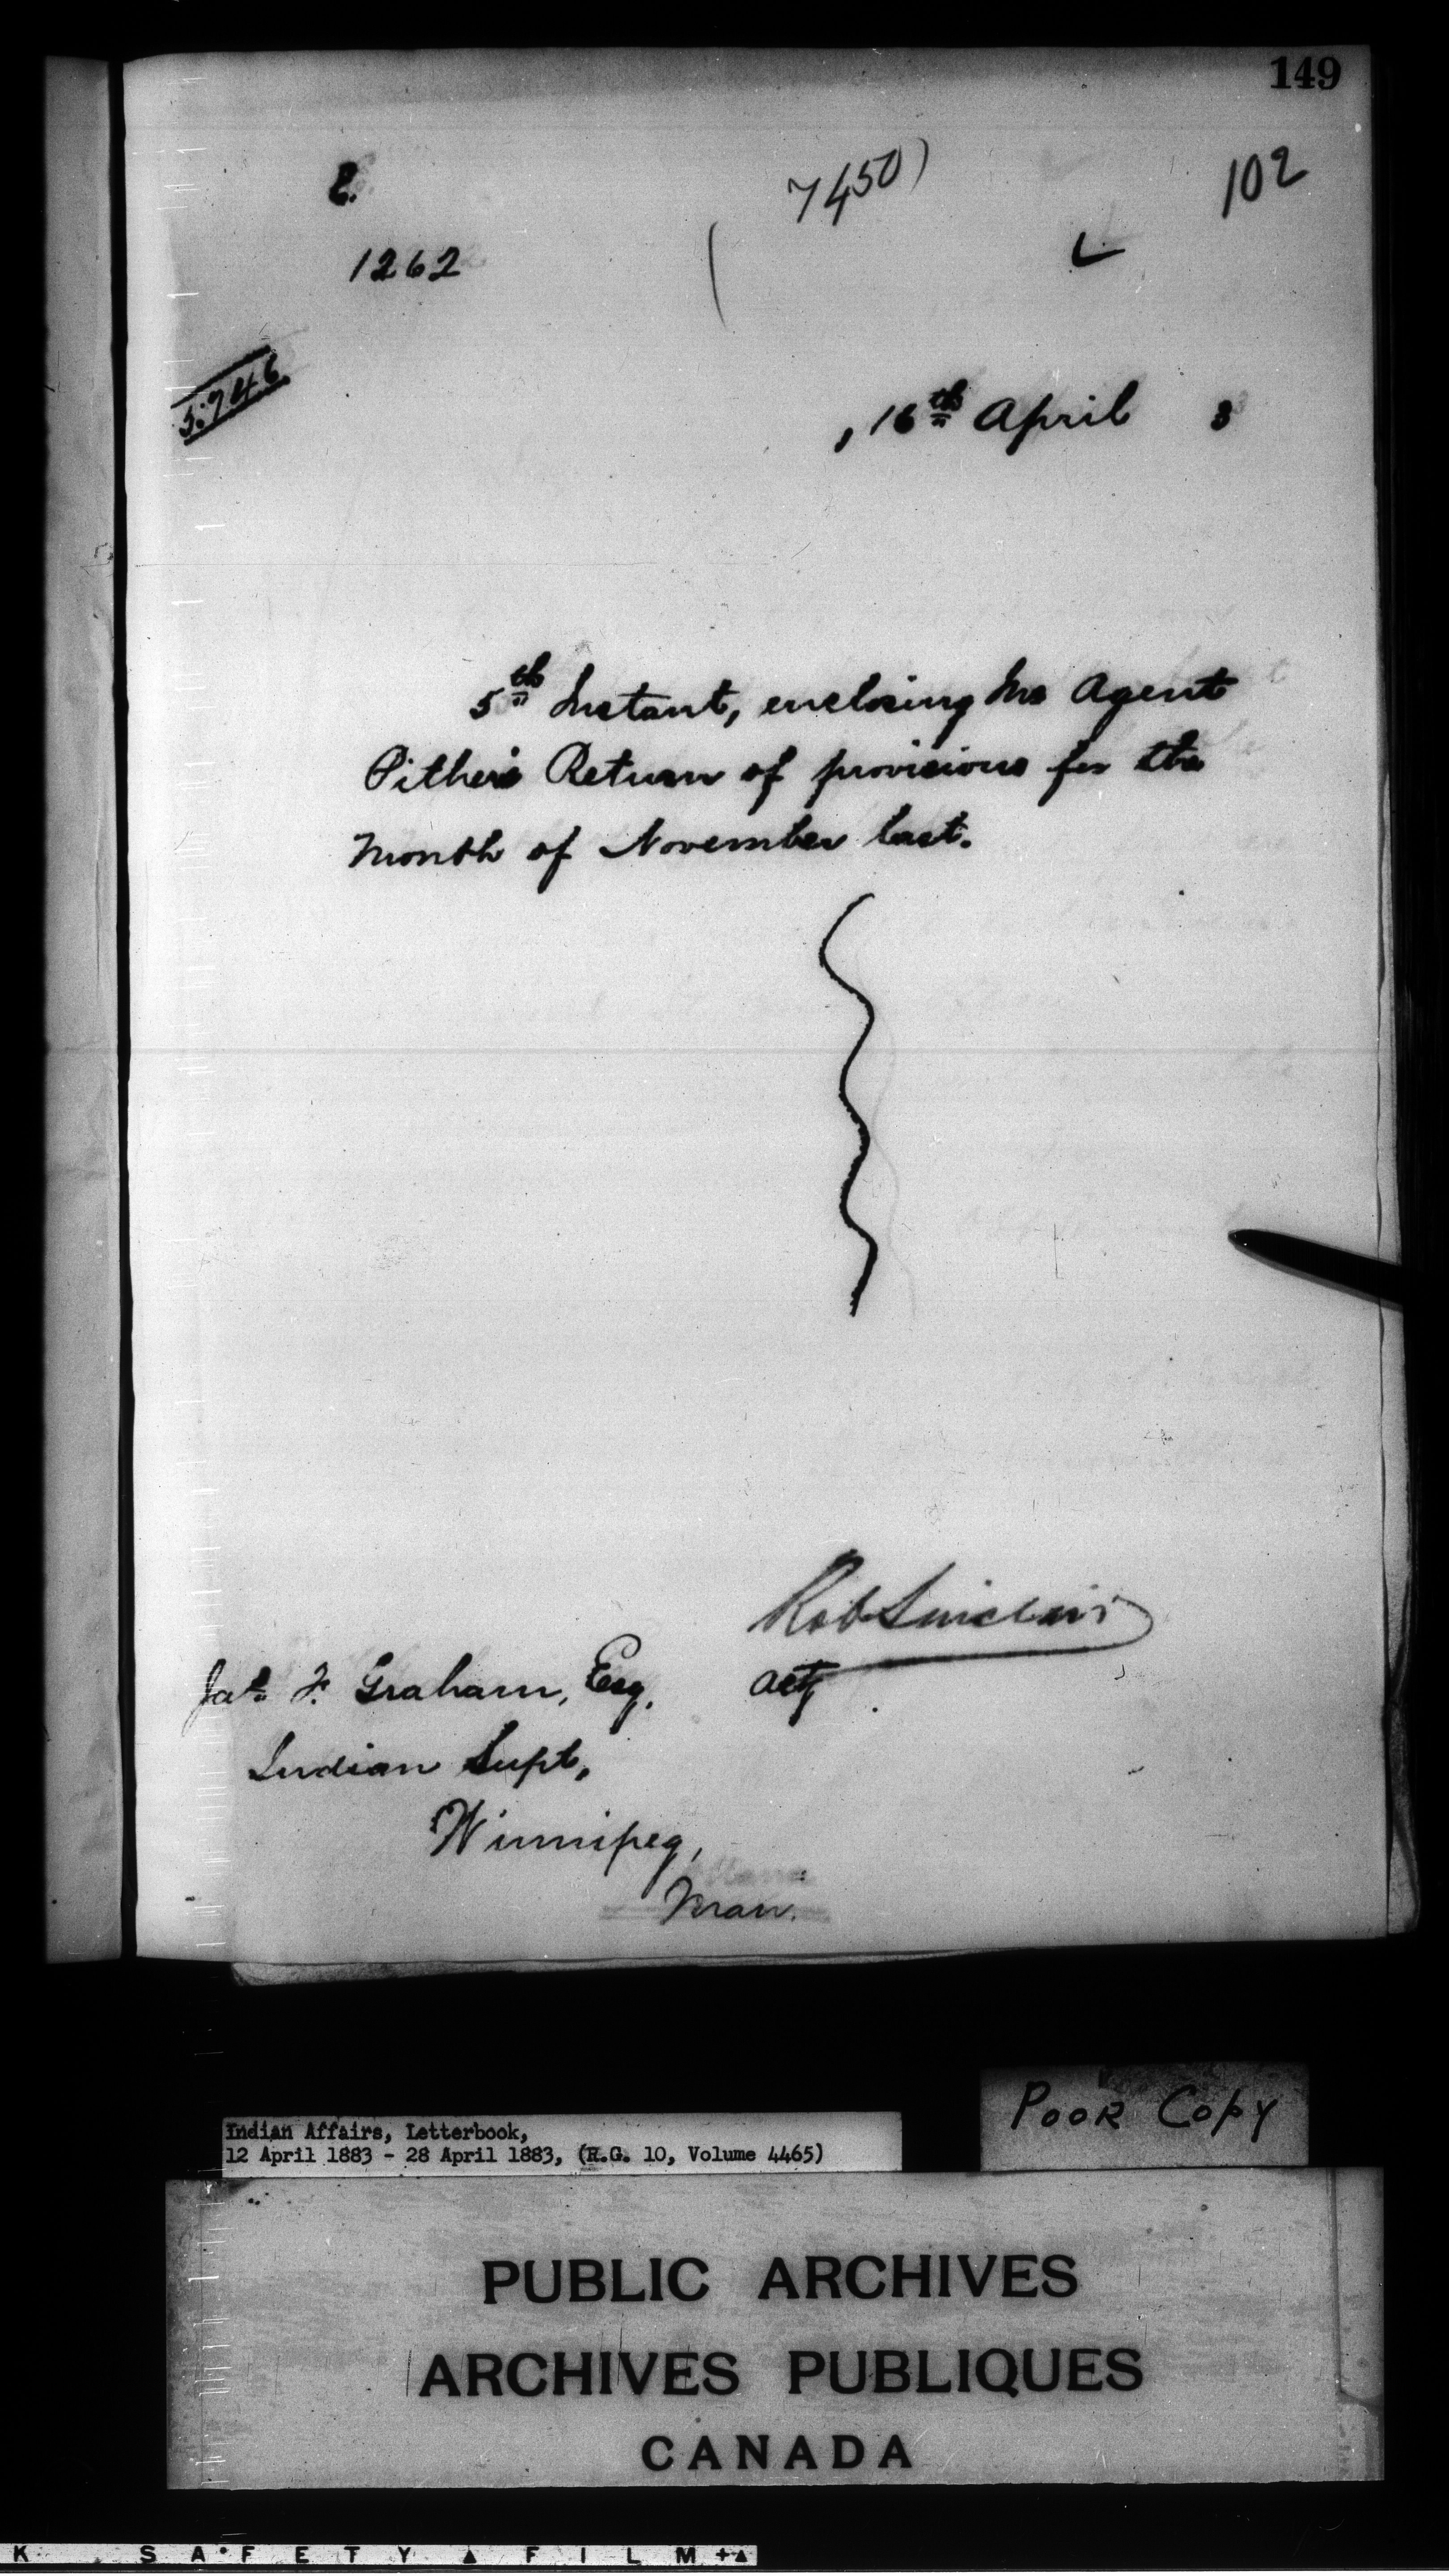 149
102
7450)
E.
1262
L
5.746
, 16th April 3
5th Instant, enclosing Mr Agent
Pither's Return of provisions for the
Month of November last.
Rob Sinclair
actg
Jas. F. Graham, Esq.
Indian Supt,
Winnipeg,
Man.
POOR COPY
Indian Affairs, Letterbook,
12 April 1883 - 28 April 1883, (R.G. 10, Volume 4465)
PUBLIC ARCHIVES
ARCHIVES PUBLIQUES
CANADA
K SAFETY FILM